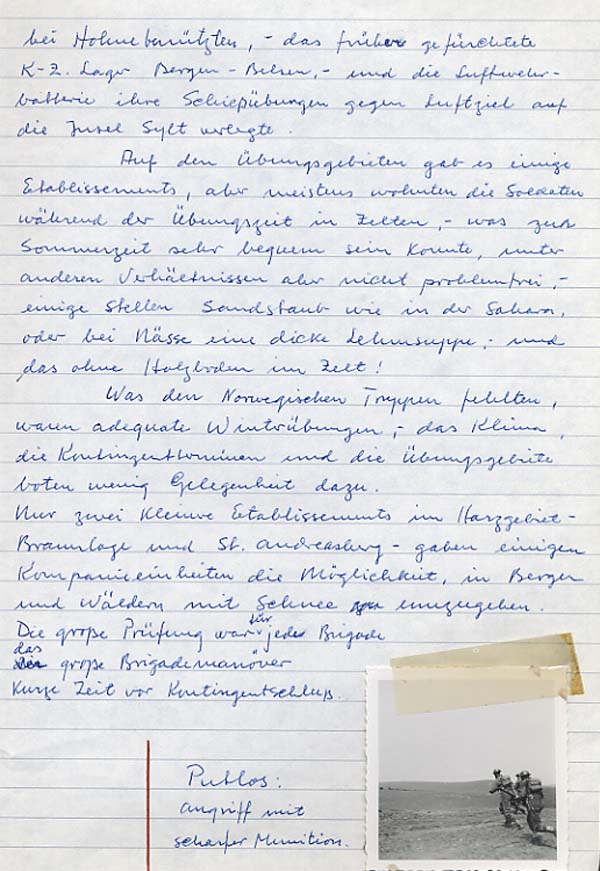 bei Hohne benützten, - das früher gefürchtete
K-Z. Lager Bergen-Belsen, - und die Luftwehr-
batterie ihre Schießübungen gegen Luftziel auf
die Insel Sylt verlegte.
Auf den Übungsgebieten gab es einige
Etablissements, aber meistens wohnten die Soldaten
während der Übungszeit in Zelten, - was zur
Sommerzeit sehr bequem sein konnte, unter
anderen Verhältnissen aber nicht problemfrei, -
einige Stellen Sandstaub wie in der Sahara,
oder bei Nässe eine dicke Lehmsuppe, - und
das ohne Holzboden im Zelt!
Was den Norwegischen Truppen fehlten,
waren adequate Winterübungen, - das Klima,
die Kontingenttermine und die Übungsgebiete
boten wenig Gelegenheit dazu.
Nur zwei kleine Etablissements im Harzgebiet -
Braunlage und St. Andreasberg - gaben einigen
Kompanieeinheiten die Möglichkeit, in Bergen
und Wäldern mit Schnee umzugehen.
Die große Prüfung war für jede Brigade
das große Brigademanöver
kurze Zeit vor Kontingentschluß.
Putlos:
Angriff mit
scharfer Munition.